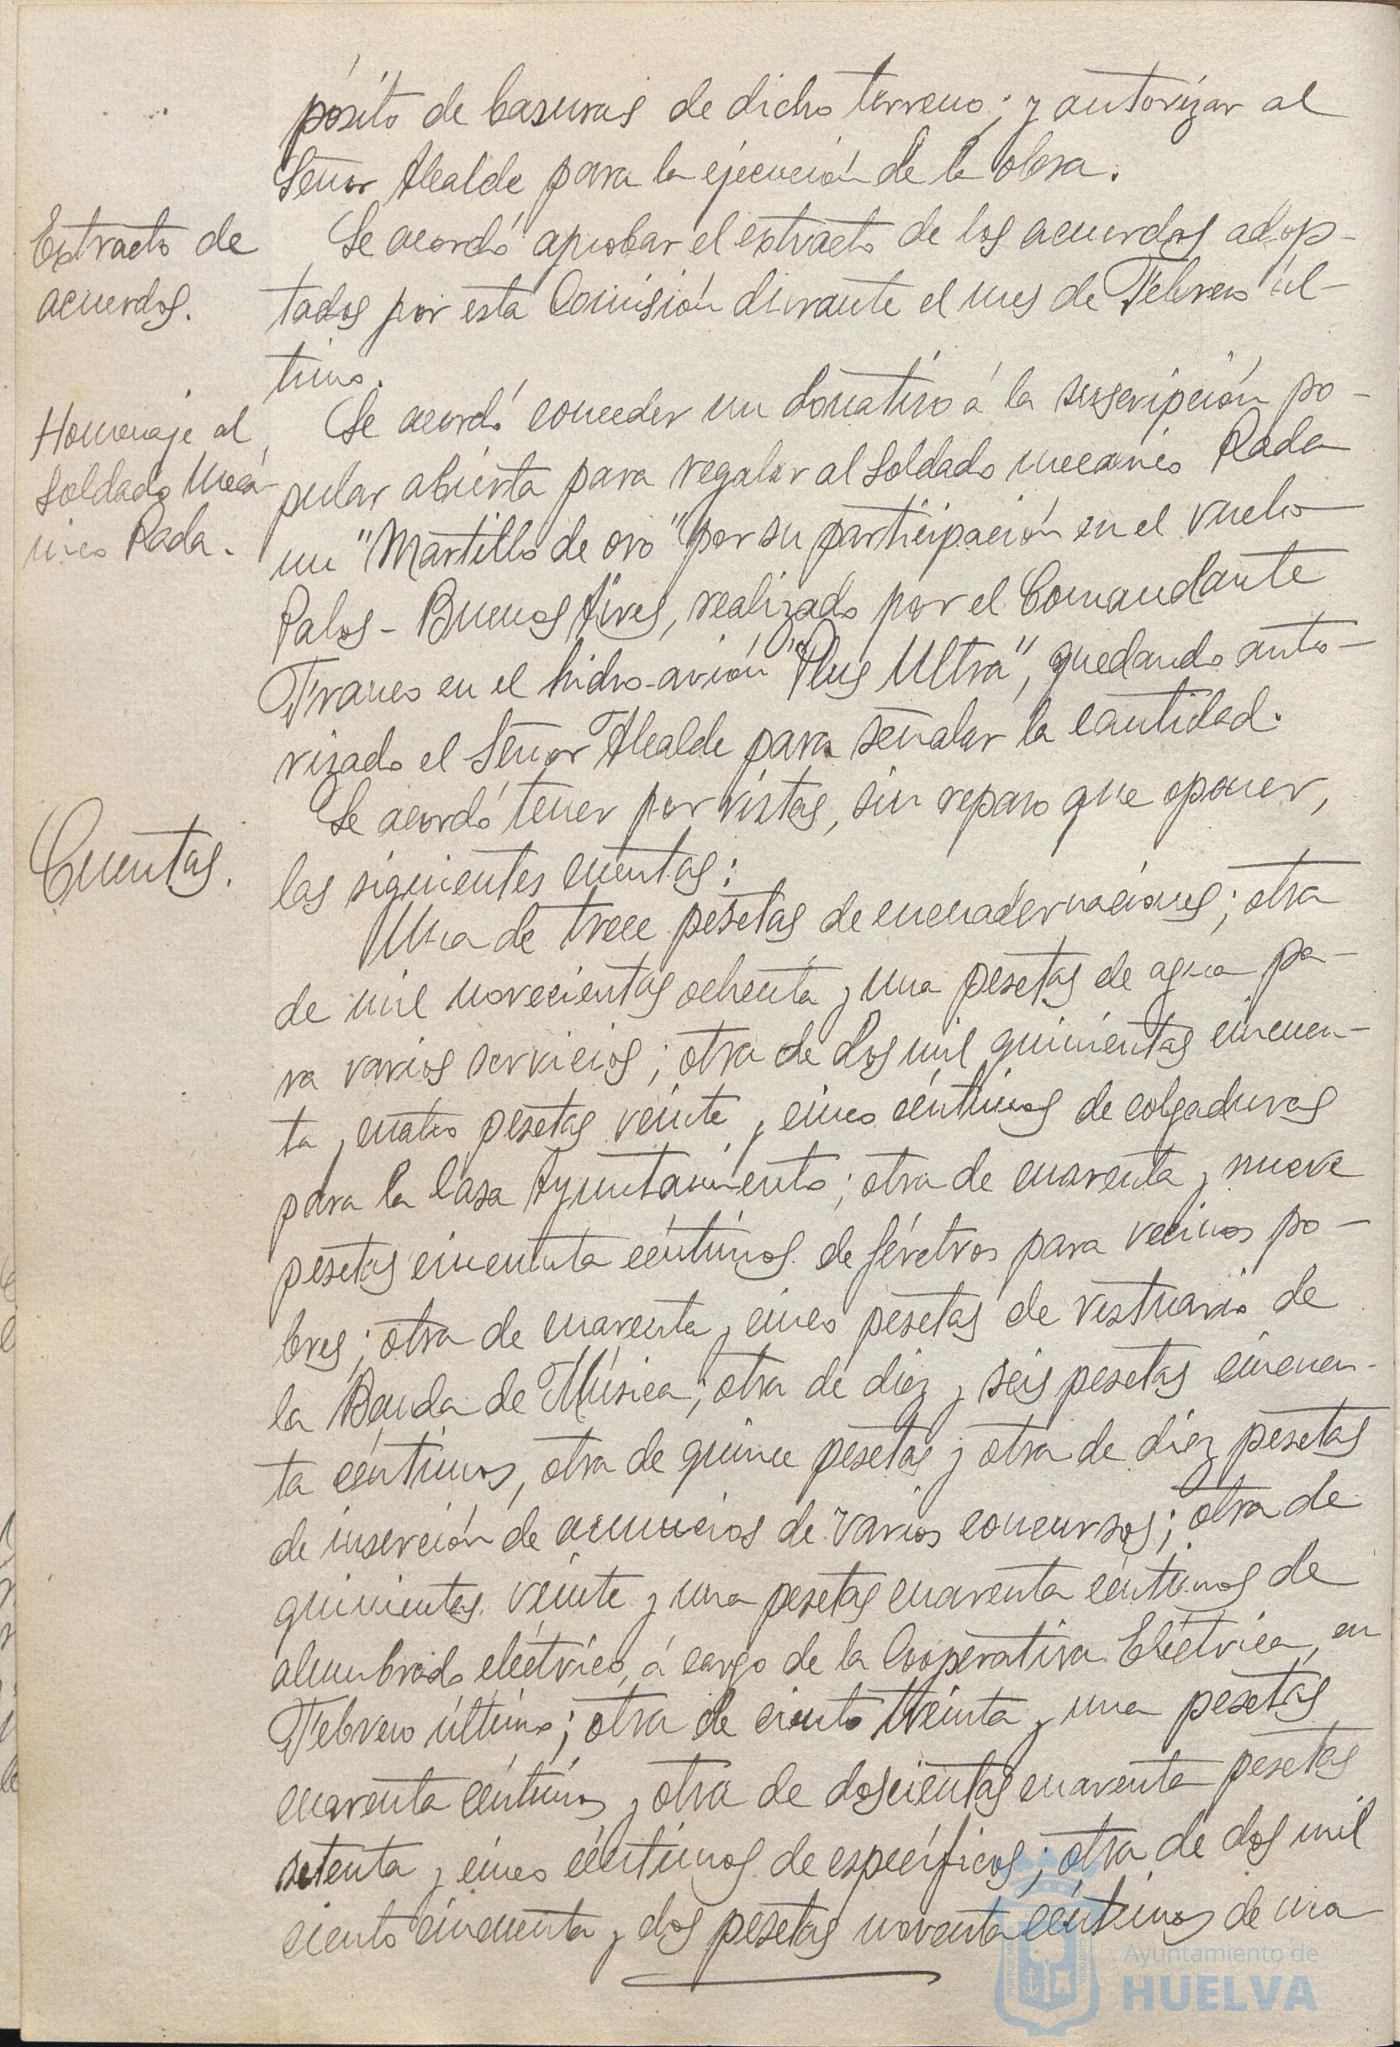 pósito de basuras de dicho terreno; y autorizar al
Señor Alcalde para la ejecución de la obra.
Extracto de
acuerdos.
Se acordó aprobar el extracto de los acuerdos adop-
tados por esta Comisión durante el mes de Febrero úl-
timo.
Homenaje al
soldado mecá-
nico Rada.
Se acordó conceder un donativo á la suscripción po-
pular abierta para regalar al soldado mecánico Rada
un "Martillo de oro" por su participación en el vuelo
Palos-Buenos Aires, realizado por el Comandante
Franco en el hidro-avión "Plus Ultra", quedando auto-
rizado el Señor Alcalde para señalar la cantidad.
Cuentas.
Se acordó tener por vistas, sin reparo que oponer,
las siguientes cuentas:
Una de trece pesetas de encuadernaciones; otra
de mil novecientas ochenta y una pesetas de agua pa-
ra varios servicios; otra de dos mil quinientas cincuen-
ta y cuatro pesetas veinte y cinco céntimos de colgaduras
para la Casa Ayuntamiento; otra de cuarenta y nueve
pesetas cincuenta céntimos de féretros para vecinos po-
bres; otra de cuarenta y cinco pesetas de vestuario de
la Banda de Música; otra de diez y seis pesetas cincuen-
ta céntimos, otra de quince pesetas y otra de diez pesetas
de inserción de anuncios de varios concursos; otra de
quinientas veinte y una pesetas cuarenta céntimos de
alumbrado eléctrico, á cargo de la Cooperativa Eléctrica, en
Febrero último; otra de ciento treinta y una pesetas
cuarenta céntimos y otra de doscientas cuarenta pesetas
setenta y cinco céntimos de específicos; otra de dos mil
ciento cincuenta y dos pesetas noventa céntimos de ma
Ayuntamiento de
HUELVA